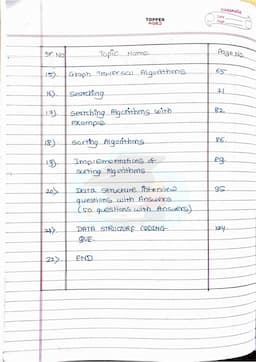 TOPPER
Date
Page
Sr. No Topic Name Page No.
15) Graph Traversal Algorithms 65
16) Searching 71
17) Searching Algorithms with
example 82
18) Sorting Algorithms 86
19) Implementations of
Sorting Algorithms 89
20) Data Structure interview
questions with Answers
(50 questions with Answers) 95
21) DATA STRUCTURE CODING
QUE. 124
22) END